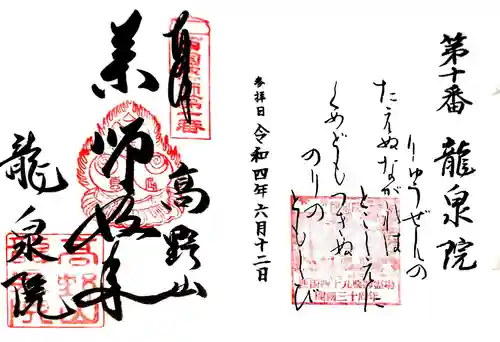 第十番 龍泉院
りゅうぜんの
たえぬながれは
とこしえに
くめどもつきぬ
のりの
ともしび
参拝日 令和四年六月十二日
奉拝
高野山
薬師如来
龍泉院